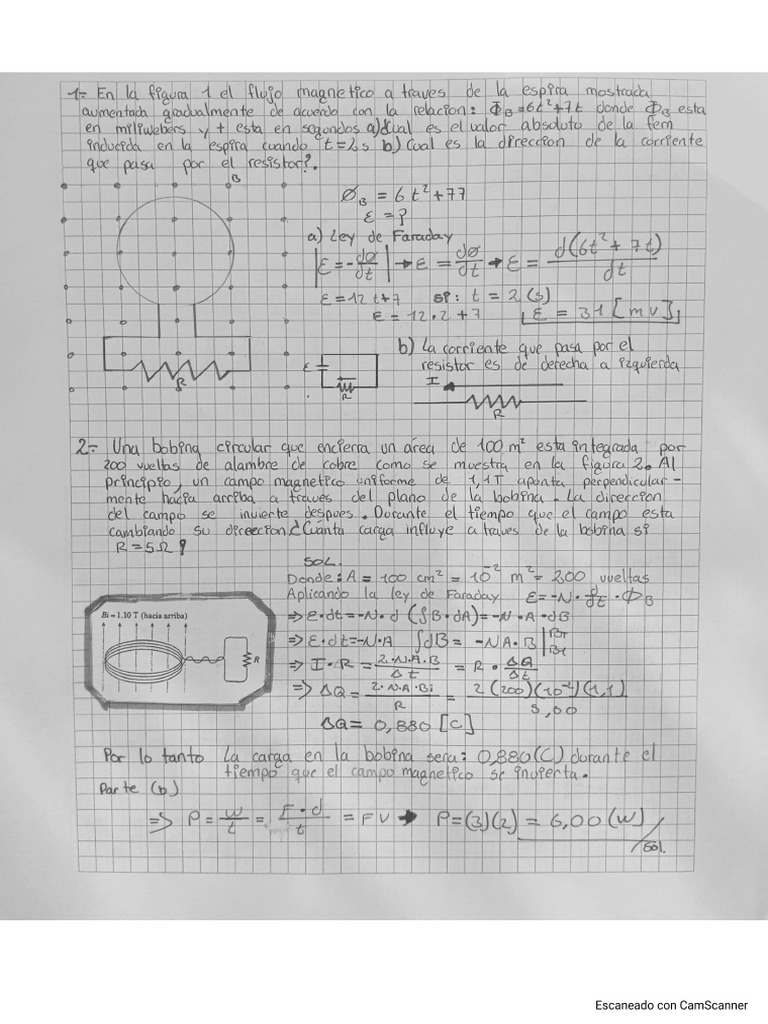 1.- En la figura 1 el flujo magnetico a traves de la espira mostrada
aumentada gradualmente de acuerdo con la relacion: Φ_B = 6t²+7t donde Φ_B esta
en miliwebers y t esta en segundos a) Cual es el valor absoluto de la fem
inducida en la espira cuando t=2s b) Cual es la direccion de la corriente
que pasa por el resistor?.
B
Ø_B = 6t²+77
ε = ?
a) Ley de Faraday
|ε = -dø/dt| → ε = dø/dt → ε = d(6t² + 7t)/dt
ε = 12t+7 sp: t = 2(s)
ε = 12·2+7 ε = 31[mv]
b) La corriente que pasa por el
resistor es de derecha a izquierda
R
ε
R
I
R
2.- Una bobina circular que encierra un area de 100 m² esta integrada por
200 vueltas de alambre de cobre como se muestra en la figura 2. Al
principio, un campo magnetico uniforme de 1,1T aponta perpendicular-
mente hacia arriba a través del plano de la bobina. La direccion
del campo se invierte despues. Durante el tiempo que el campo esta
cambiando su direccion ¿Cuánta carga influye a traves de la bobina si
R=5Ω?
SOL.
Donde: A = 100 cm² = 10⁻² m² = 200 vueltas
Aplicando la ley de Faraday ε=-N·d/dt·Φ_B
⇒ ε·dt=-N·d (∫B·dA)=-N·A·dB
⇒ ε·dt=-N·A ∫dB = -NA·B|
⇒ I·R = 2·N·A·B/Δt = R·ΔQ/Δt
⇒ ΔQ = 2·N·A·Bi/R = 2(200)(10⁻²)(1,1)/5,00
ΔQ = 0,880 [C]
Bi = 1.10 T (hacia arriba)
R
Por lo tanto la carga en la bobina sera: 0,880(C) durante el
tiempo que el campo magnetico se invierta.
Parte (b)
⇒ P = W/t = F·d/t = FV → P=(3)(2) = 6,00(W)
sol.
Escaneado con CamScanner